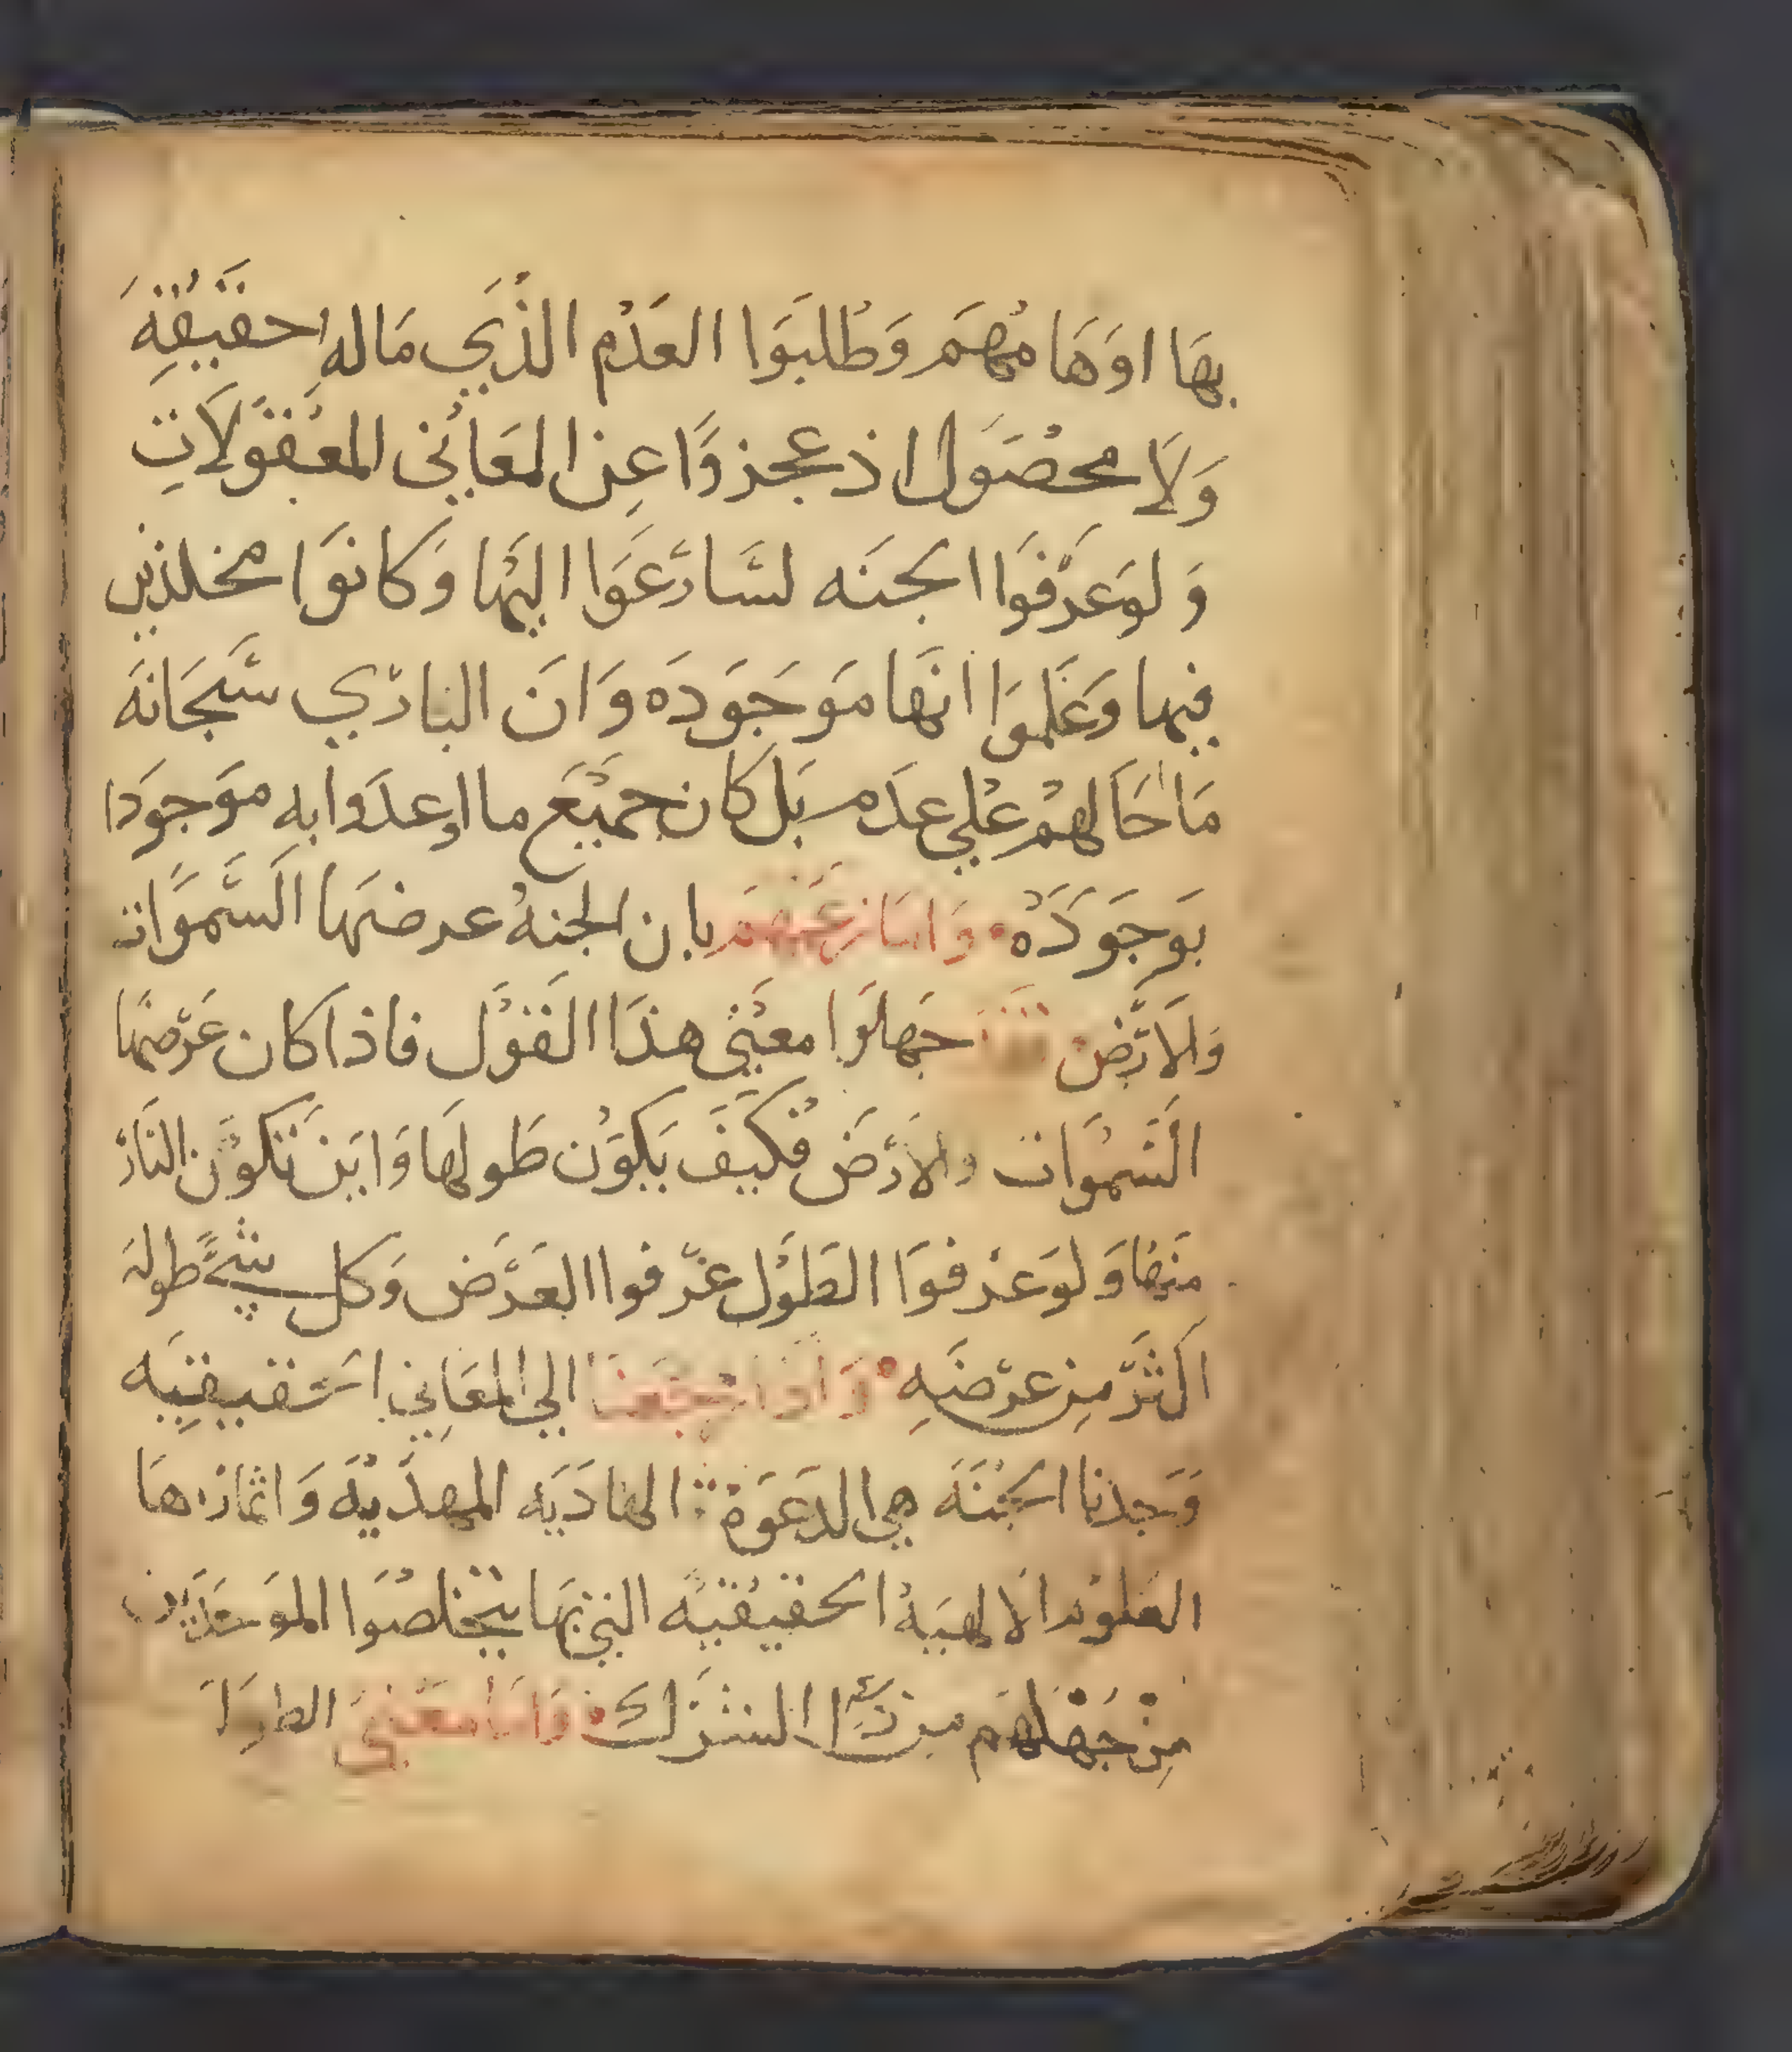 بها اوهامهم وطلبوا العدم الذي ماله حقيقة
ولا محصول اذ عجزوا عن المعاني المعقولات
ولو عرفوا الجنه لسارعوا اليها وكانوا مخلدين
فيها وعلموا انها موجوده وان الباري سبحانه
ما احالهم علي عدم بل كان جميع ما اوعدوا به موجودا
بوجوده واما زعمهم بان الجنة عرضها السموات
والارض فقد جهلوا معني هذا القول فاذا كان عرضها
السموات والارض فكيف يكون طولها واين تكون النار
منها ولو عرفوا الطول عرفوا العرض وكل شيء طوله
اكثر من عرضه واذا رجعنا الي المعاني الحقيقيه
وجدنا الجنه هي الدعوة الهاديه المهديه واثمارها
العلوم الالهية الحقيقيه التي بها يتخلصوا الموحدين
من جهلهم من داء الشرك واما معني الطول